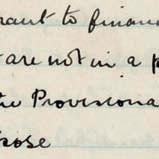 rant to finan
are not in a p
the Provisiona
pose